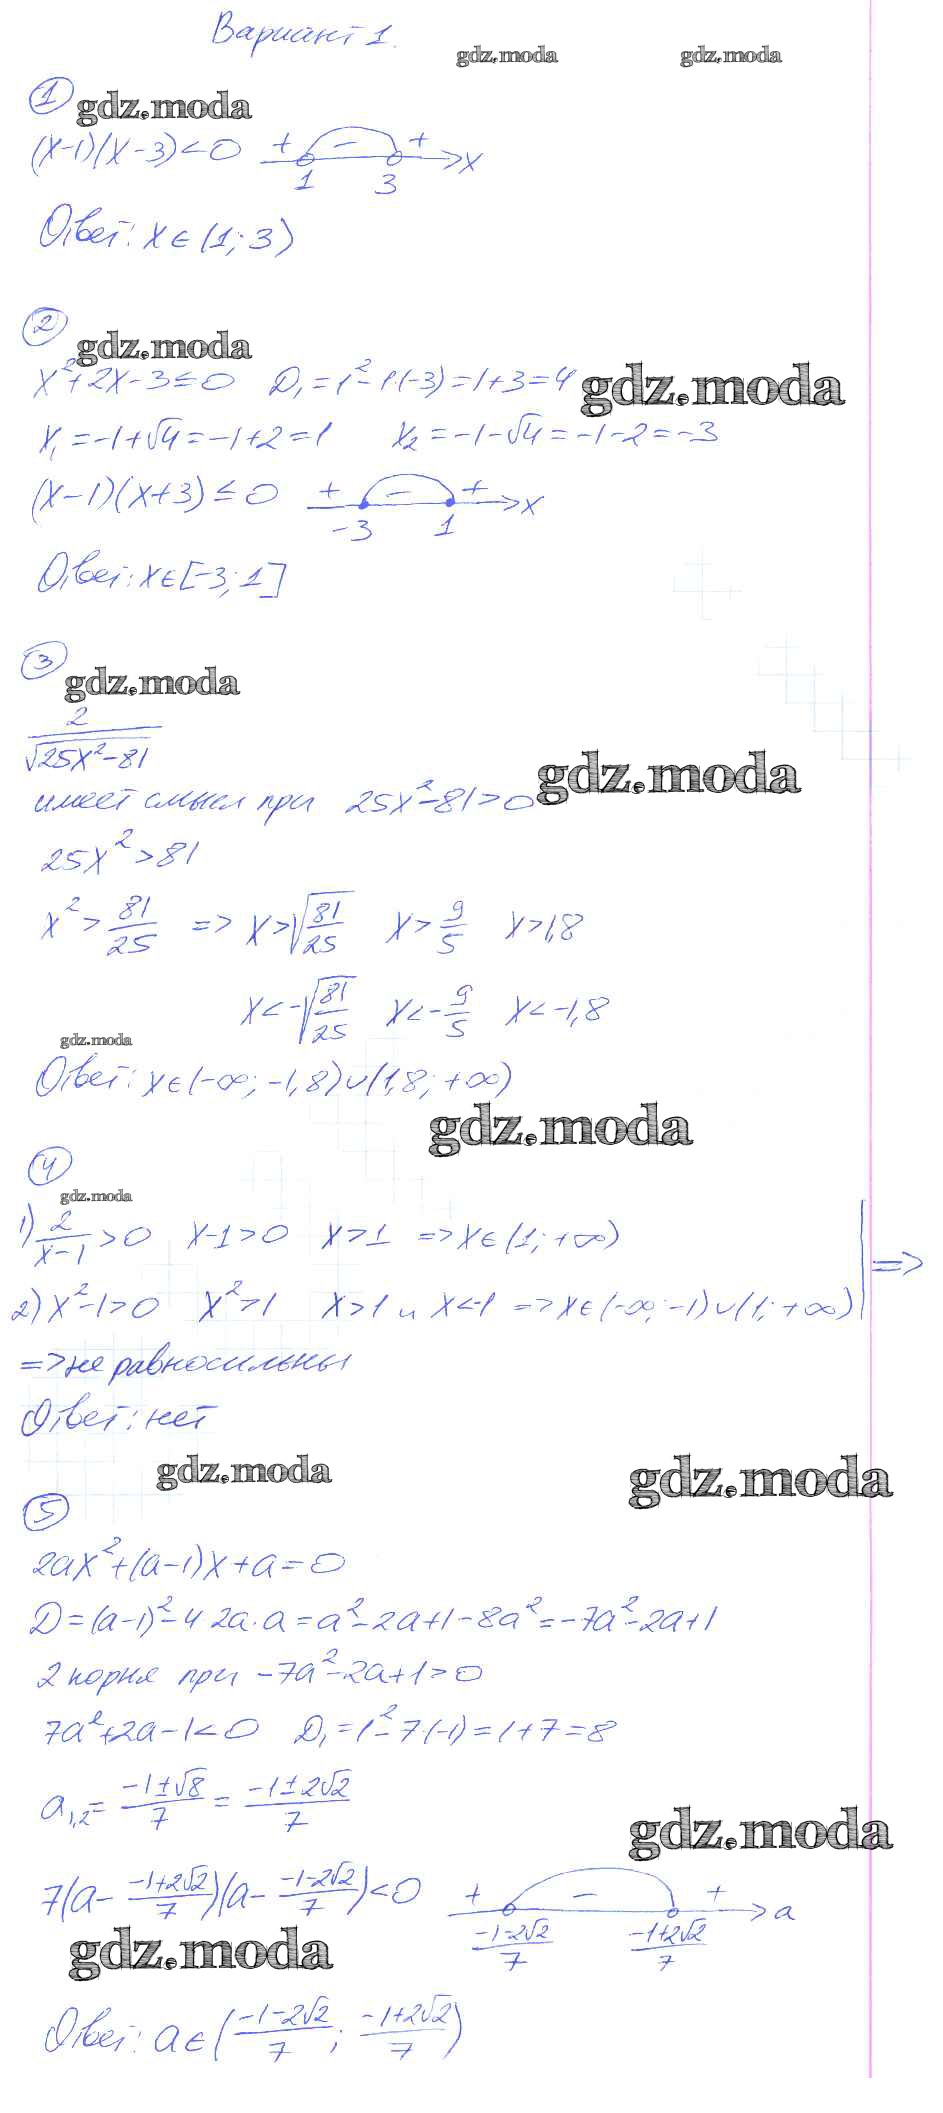 Вариант 1.
gdz.moda gdz.moda
1
gdz.moda
(x-1)(x-3)<0 + - + x
1 3
Ответ: x∈(1; 3)
2
gdz.moda
x²+2x-3≤0 D₁=1²-1·(-3)=1+3=4
gdz.moda
x₁=-1+√4=-1+2=1 x₂=-1-√4=-1-2=-3
(x-1)(x+3)≤0 + - + x
-3 1
Ответ: x∈[-3; 1]
3
gdz.moda
2/√25x²-81
gdz.moda
имеет смысл при 25x²-81>0
25x²>81
x²>81/25 => x>√81/25 x>9/5 x>1,8
x<-√81/25 x<-9/5 x<-1,8
gdz.moda
Ответ: x∈(-∞; -1,8)∪(1,8; +∞)
gdz.moda
4
gdz.moda
1) 2/x-1>0 x-1>0 x>1 => x∈(1; +∞)
=>
2) x²-1>0 x²>1 x>1 и x<-1 => x∈(-∞; -1)∪(1; +∞)
=> не равносильны
Ответ: нет
gdz.moda gdz.moda
5
2ax²+(a-1)x+a=0
D=(a-1)²-4·2a·a=a²-2a+1-8a²=-7a²-2a+1
2 корня при -7a²-2a+1>0
7a²+2a-1<0 D₁=1²-7·(-1)=1+7=8
a₁,₂=-1±√8/7=-1±2√2/7
gdz.moda
7(a-(-1+2√2)/7)(a-(-1-2√2)/7)<0 + - + a
-1-2√2/7 -1+2√2/7
gdz.moda
Ответ: a∈(-1-2√2/7; -1+2√2/7)